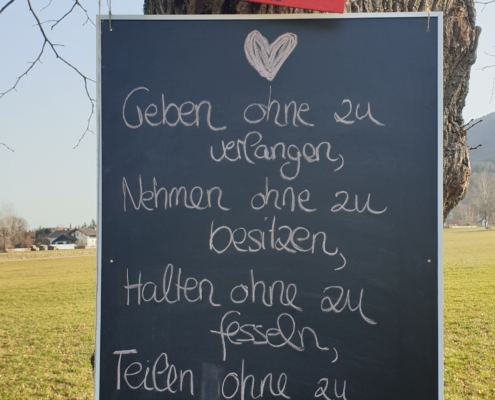 Geben ohne zu
verlangen,
Nehmen ohne zu
besitzen,
Halten ohne zu
fesseln,
Teilen ohne zu